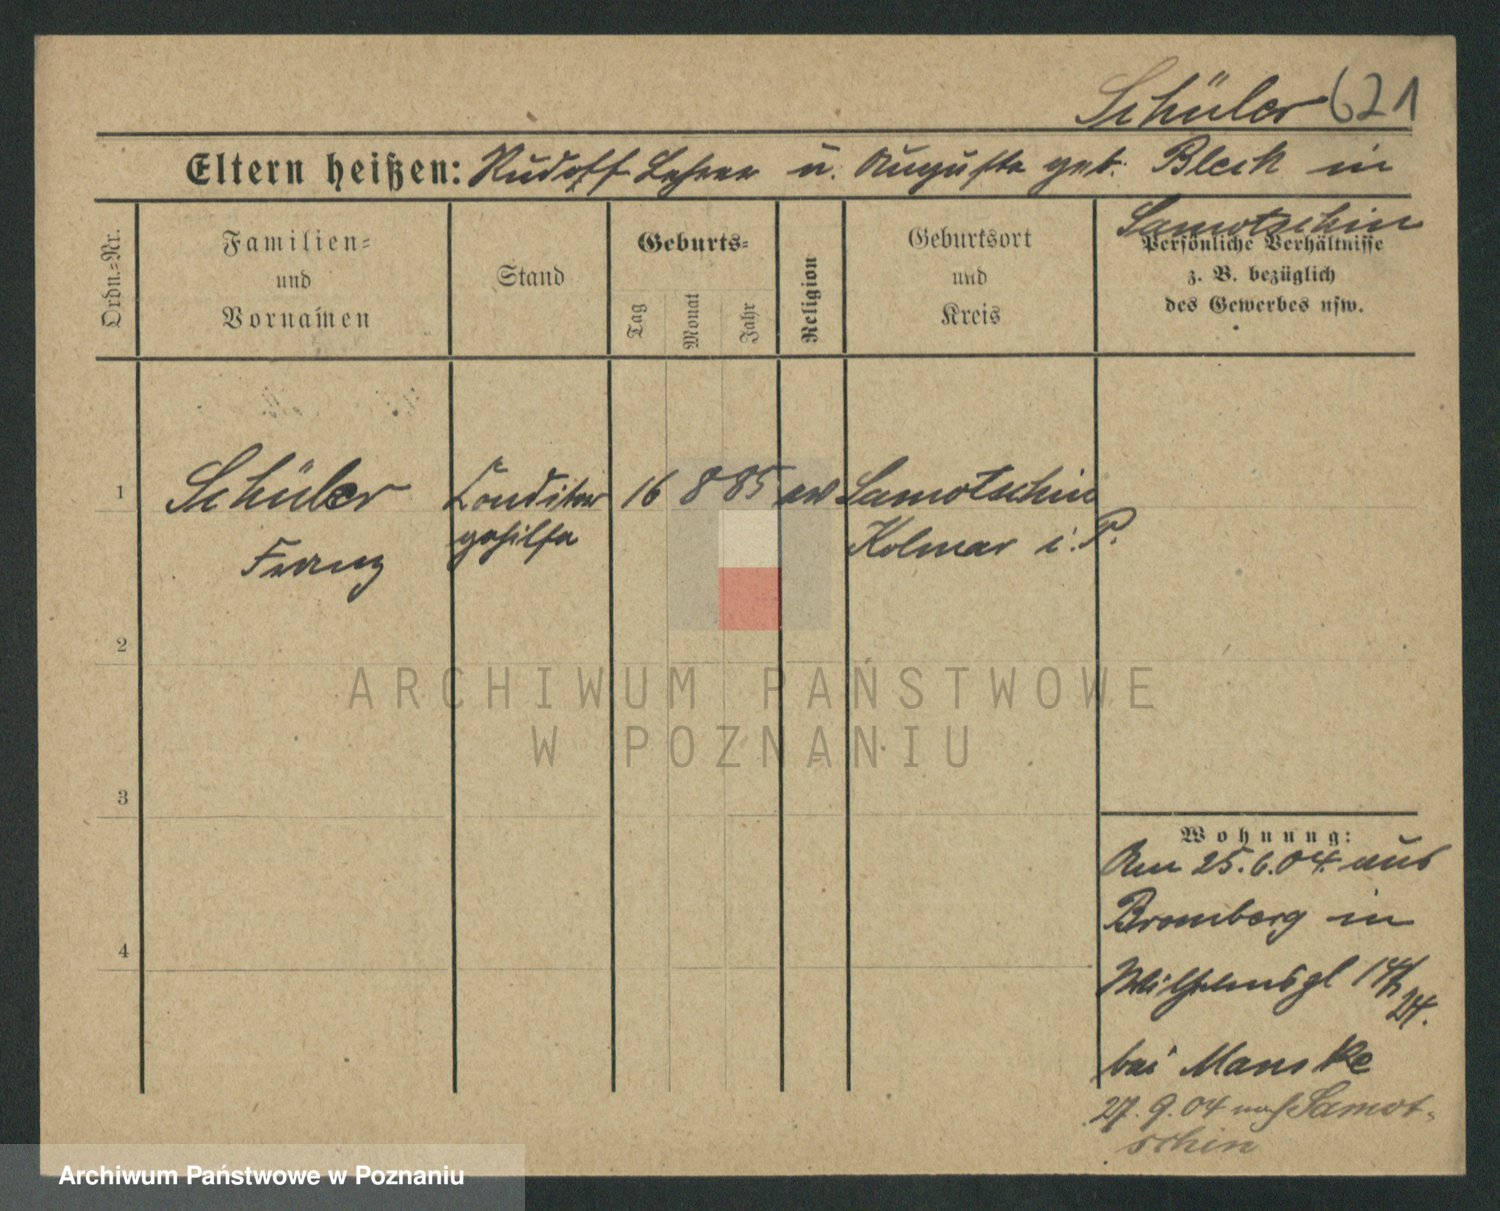 Schüler 621
Eltern heißen: Rudolf Lehrer u. Auguste geb. Bleck in
Samotschin
Ordn.=Nr.
Familien=
und
Vornamen
Stand
Geburts=
Tag
Monat
Jahr
Religion
Geburtsort
und
Kreis
Persönliche Verhältnisse
z. B. bezüglich
des Gewerbes usw.
1
Schüler
Franz
Conditor
gehilfe
16 8 85 ev
Samotschin
Kolmar i. P.
2
3
4
Wohnung:
Am 25.6.04. aus
Bromberg in
Wilhelmspl 14/
bei Manske
27.9.04 nach Samot-
schin
ARCHIWUM PAŃSTWOWE
W POZNANIU
Archiwum Państwowe w Poznaniu